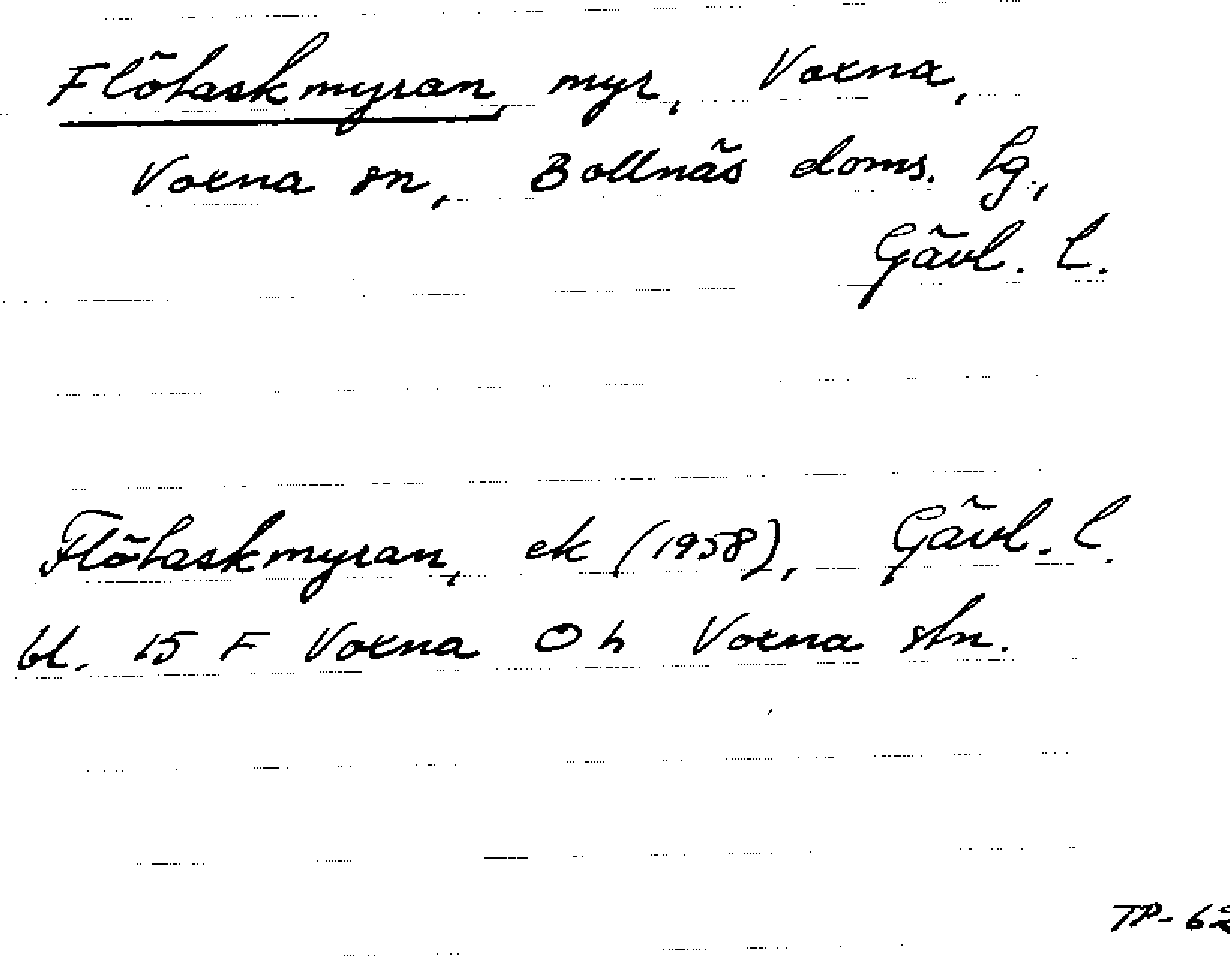 Flötaskmyran, myr, Voxna,
Voxna sn, Bollnäs doms. hg.,
Gävl. l.
Flötaskmyran, ek (1958), Gävl. l.
bl. 15 F Voxna O h Voxna stn.
TP-62